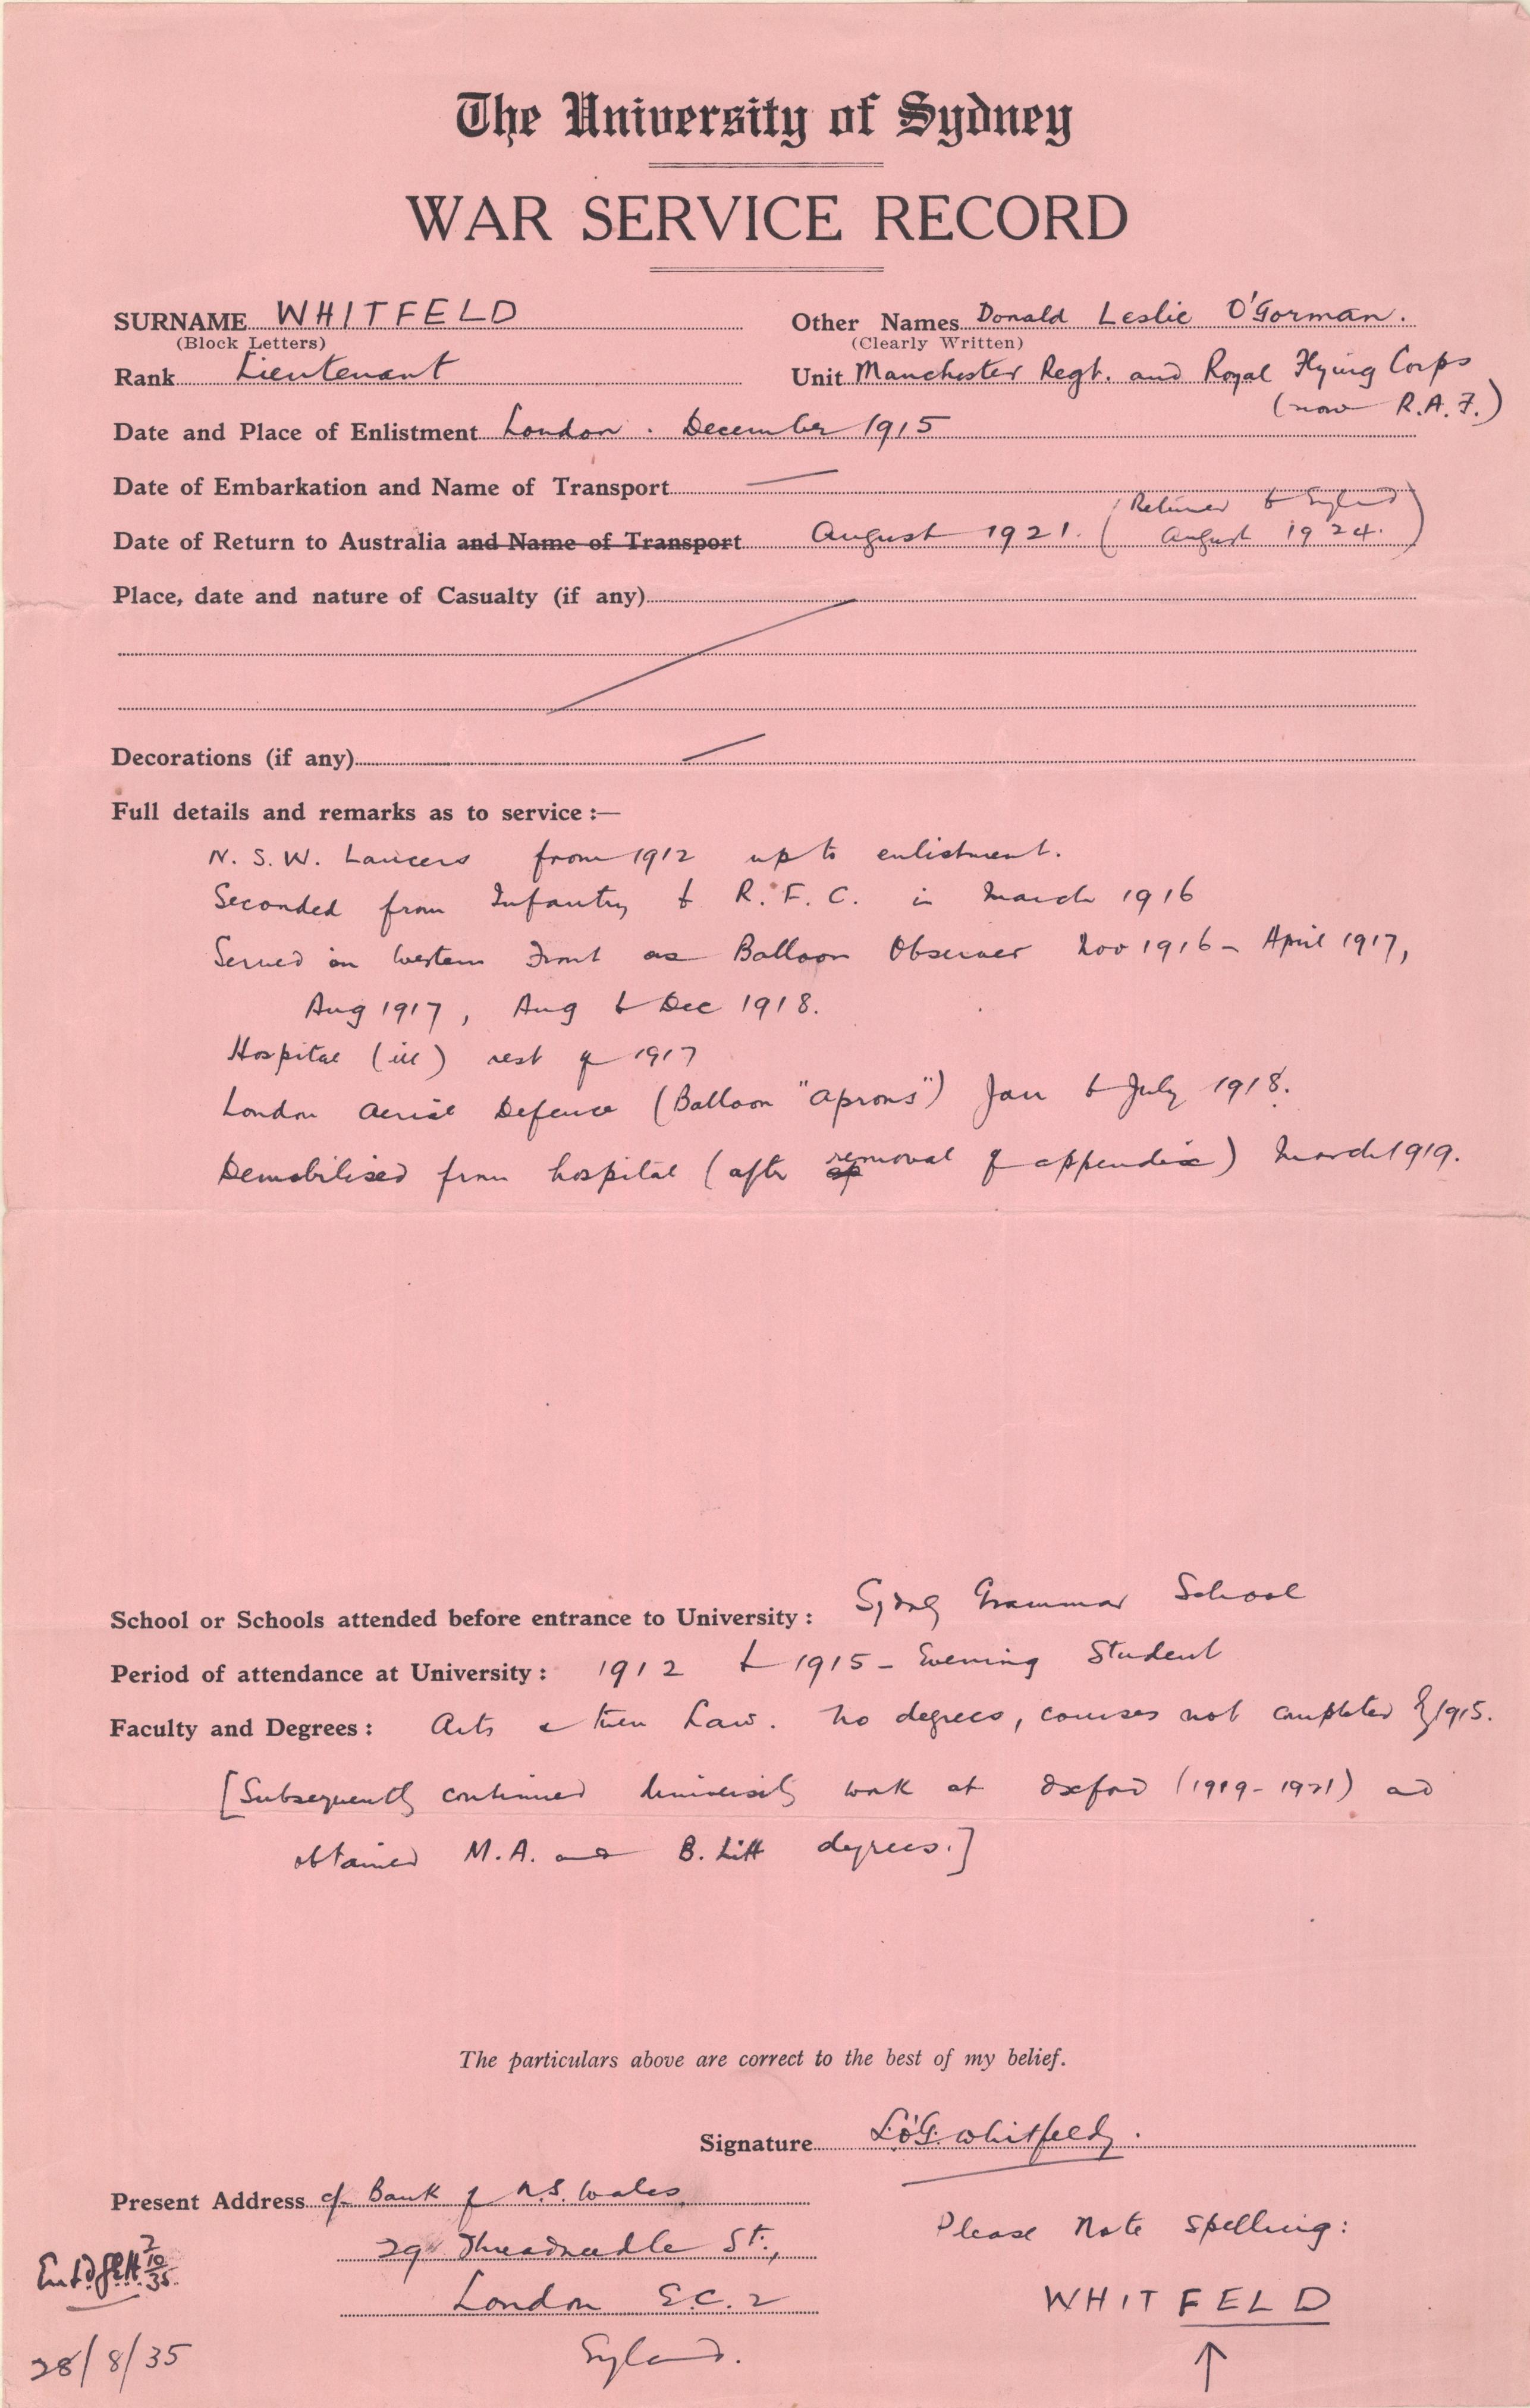 The University of Sydney
WAR SERVICE RECORD
SURNAME WHITFELD Other Names Donald Leslie O'Gorman.
(Block Letters) (Clearly Written)
Rank Lieutenant Unit Manchester Regt. and Royal Flying Corps
(now R.A.F.)
Date and Place of Enlistment London. December 1915
Date of Embarkation and Name of Transport —
(Returned to England
Date of Return to Australia and Name of Transport August 1921. August 1924.)
Place, date and nature of Casualty (if any)
Decorations (if any)
Full details and remarks as to service :—
N. S. W. Lancers from 1912 up to enlistment.
Seconded from Infantry to R. F. C. in March 1916
Served on Western Front as Balloon Observer Nov 1916 - April 1917,
Aug 1917, Aug to Dec 1918.
Hospital (ill) rest of 1917
London Aerial Defence (Balloon "Aprons") Jan to July 1918.
Demobilised from hospital (after removal of appendix) March 1919.
School or Schools attended before entrance to University : Sydney Grammar School
Period of attendance at University : 1912 to 1915 - Evening Student
Faculty and Degrees : Arts & then Law. No degrees, courses not completed by 1915.
[Subsequently continued University work at Oxford (1919-1921) and
obtained M.A. and B. Litt degrees.]
The particulars above are correct to the best of my belief.
Signature L.O'G. Whitfeld.
Present Address c/- Bank of N.S. Wales,
Please Note Spelling:
29 Threadneedle St.,
Entd 7/10/35
London E.C. 2
WHITFELD
England.
28/8/35